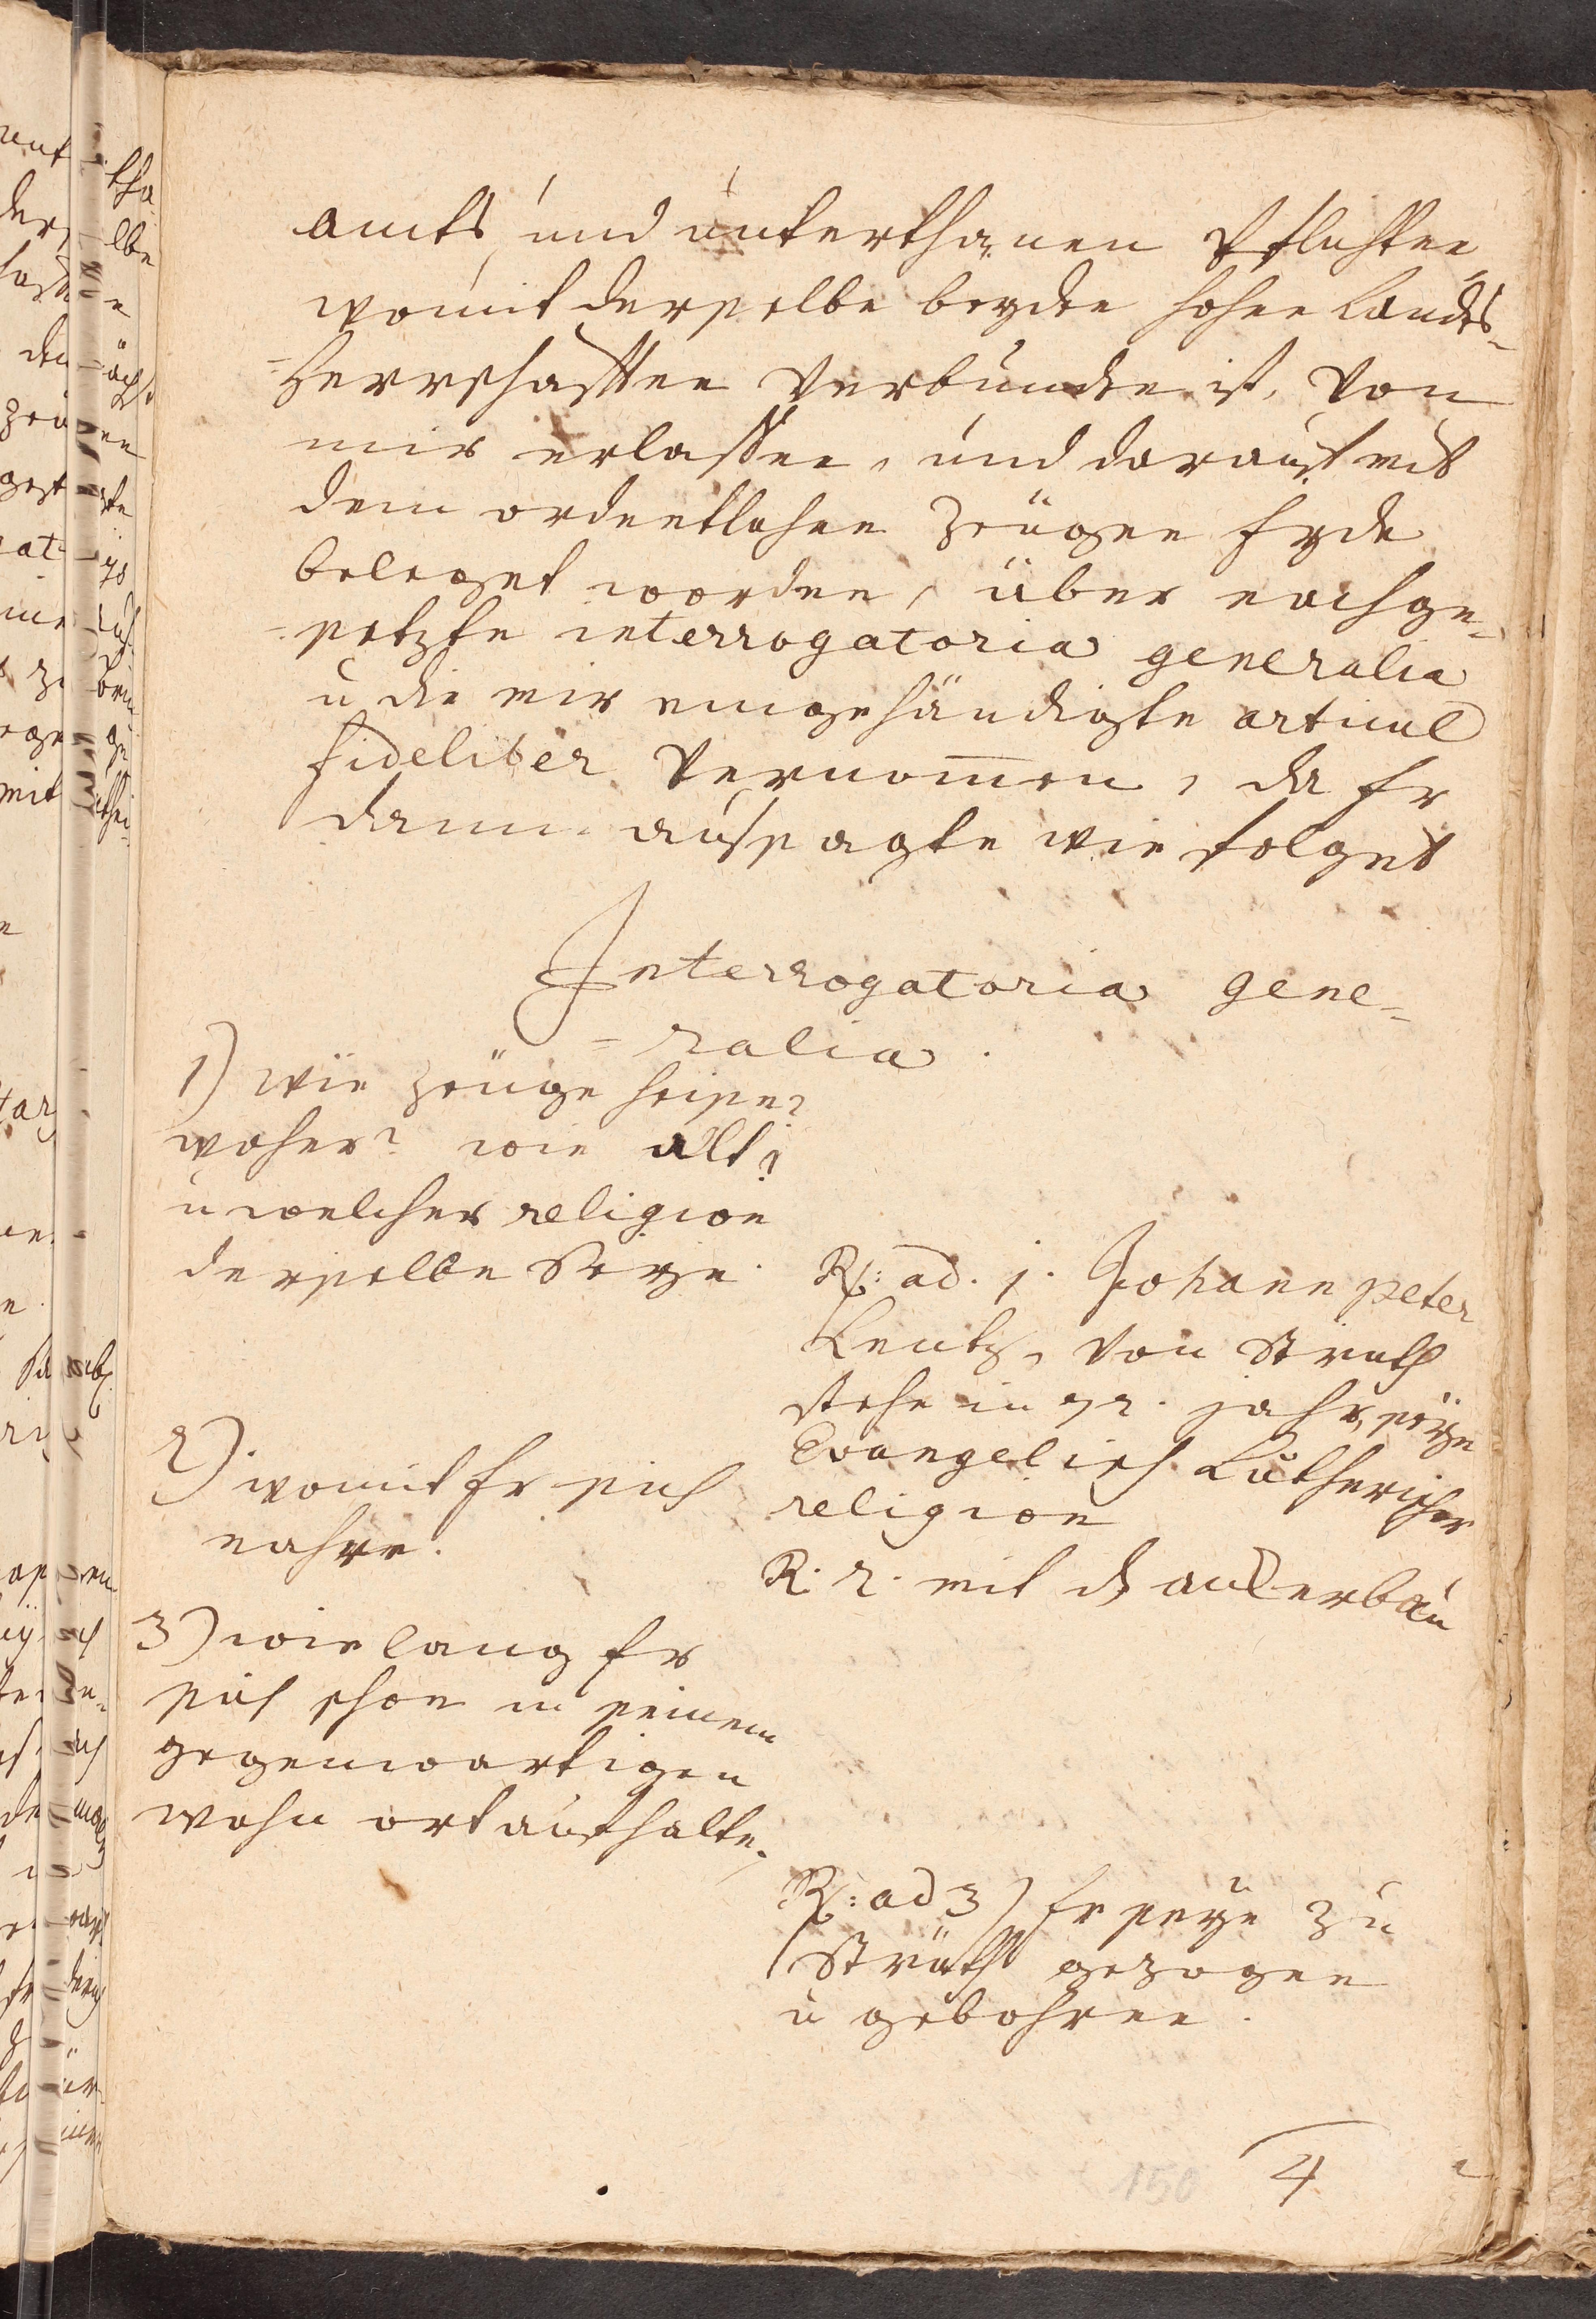 amts und unterthanen Pflichten
womit derselbe beyden hohen Landes-
=Herrschafften Verbunden ist, Von
mir erlassen, und darauf mit
dem ordentlichen Zeugen Eyde
beleget worden, über nachge-
=setzte interrogatoria generalia
u die mir eingehändigte articul
fideliter Vernom̄en, da Er
dann aussagte wie folget
Interrogatoria gene-
=ralia.
1) wie Zeuge heise?
woher? wie alt?
u welcher religion
derselbe Seye.
R: ad. 1. Johann peter
Lentz, Von Struth
stehe im 72. jahr, seye
Evangelisch Lutherischer
religion
2) womit Er sich
nahre.
R. 2. mit d ackerbau
3) wie lang Er
sich schon in seinem
gegenwartigen
wohn ort aufhalte.
R: ad 3) Er seye zu
Struth gezogen
u gebohren.
150
4